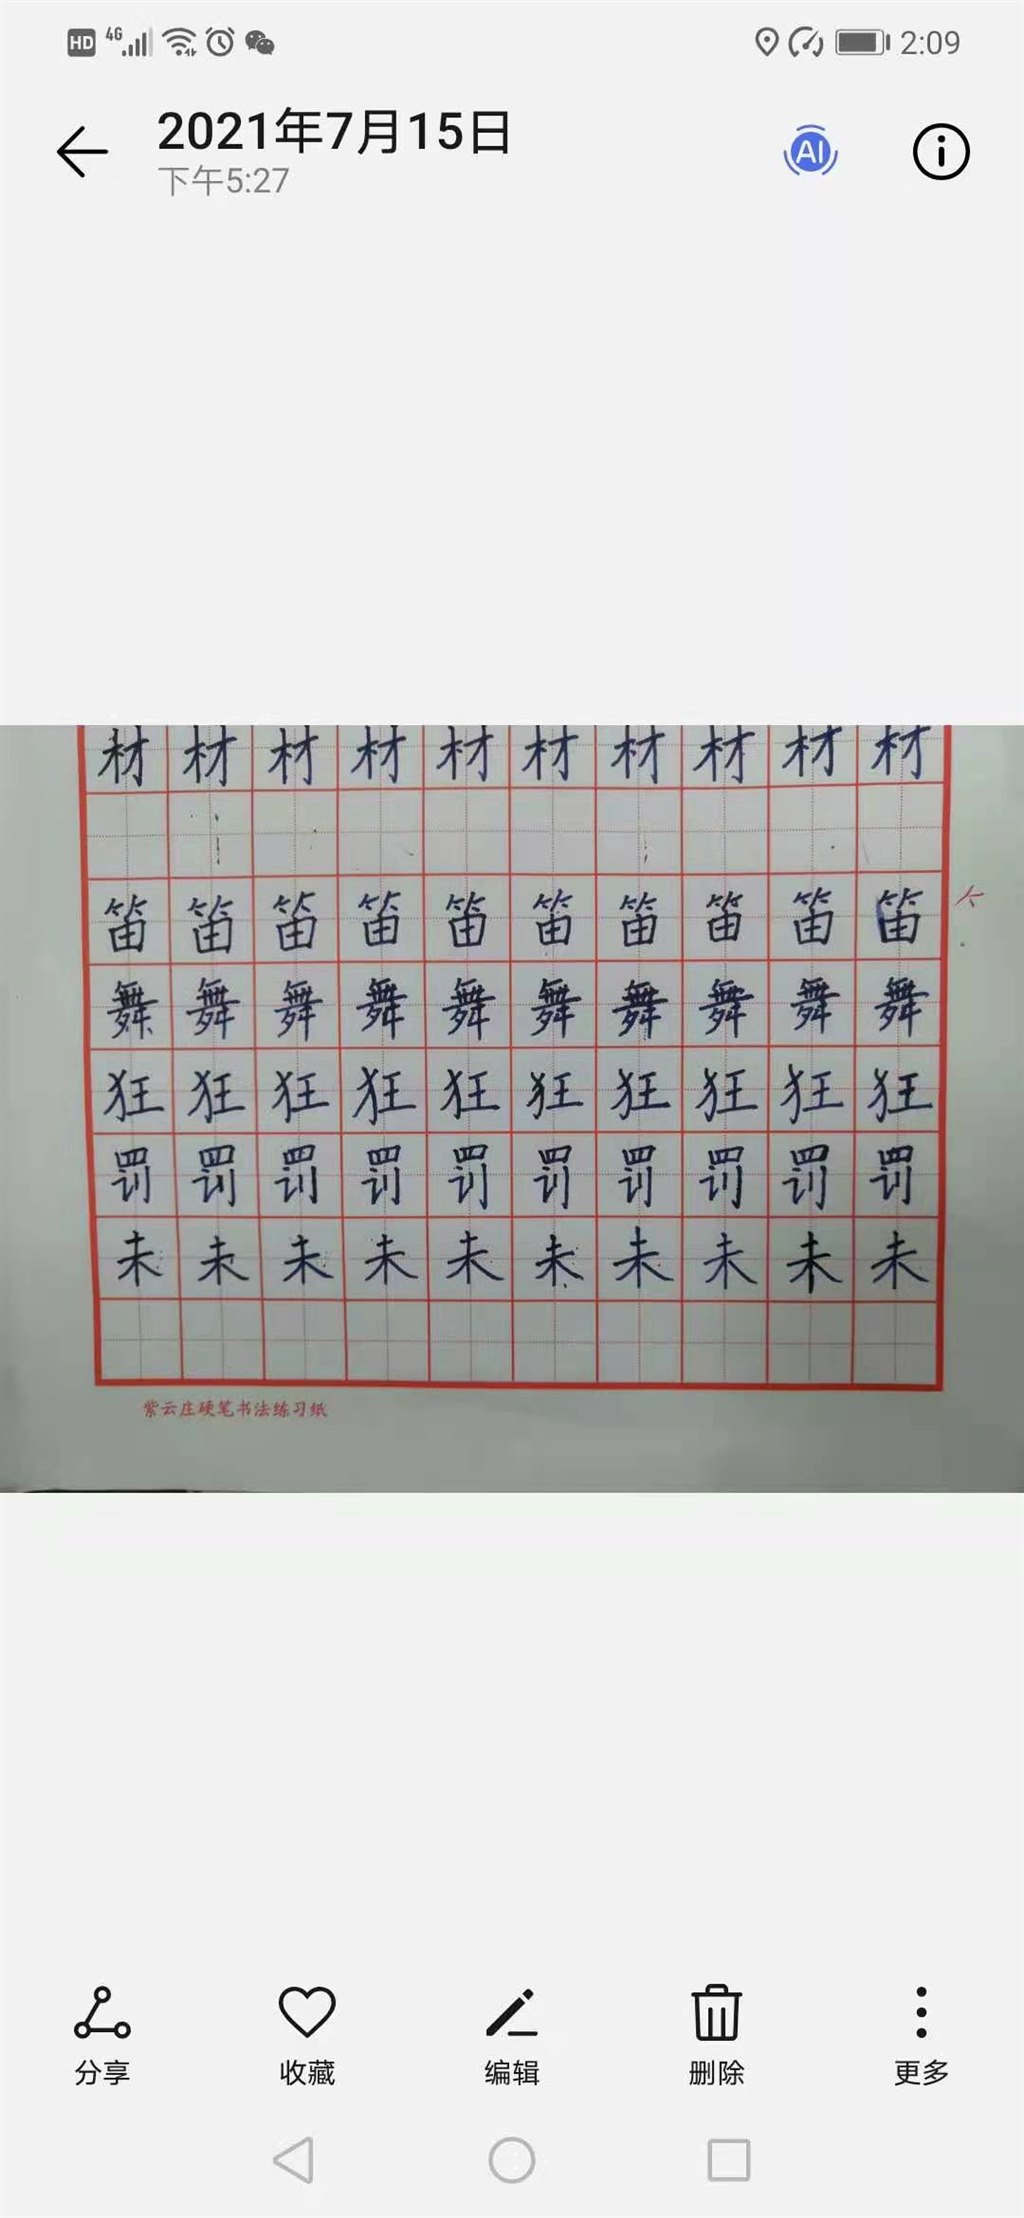 HD 4G 2:09
2021年7月15日
AI
下午5:27
材材材材材材材材材材
笛笛笛笛笛笛笛笛笛笛
舞舞舞舞舞舞舞舞舞舞
狂狂狂狂狂狂狂狂狂狂
罚罚罚罚罚罚罚罚罚罚
未未未未未未未未未未
紫云庄硬笔书法练习纸
分享 收藏 编辑 删除 更多